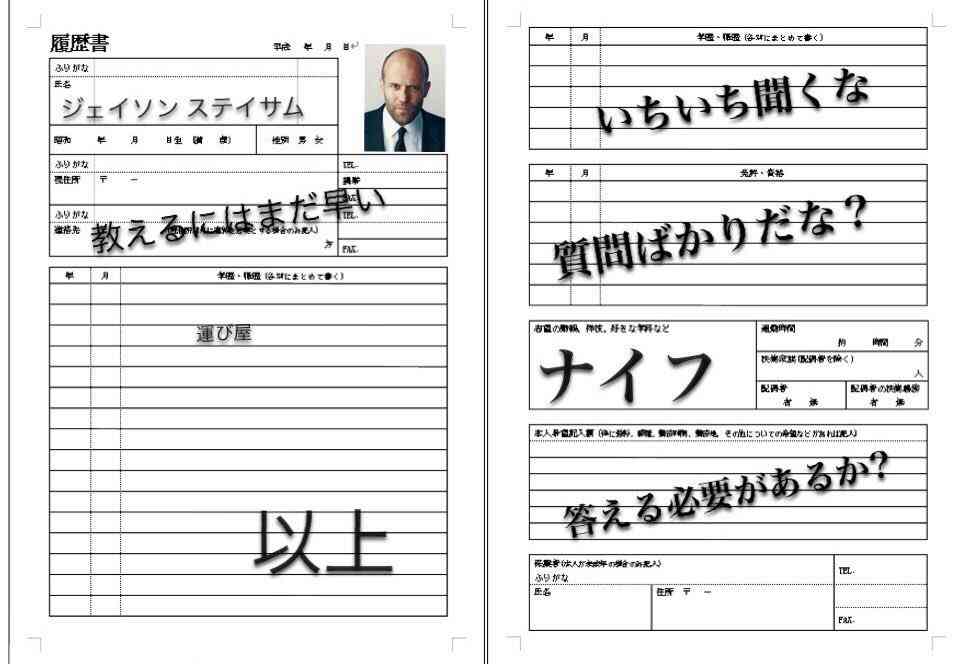 履歴書
平成 年 月 日
ふりがな
氏名
ジェイソン ステイサム
昭和 年 月 日生 (満 歳)
性別 男 女
ふりがな
TEL.
現住所 〒 －
携帯
FAX.
教えるにはまだ早い
ふりがな
TEL.
連絡先
方
FAX.
年 月 学歴・職歴 (各別にまとめて書く)
運び屋
以上
年 月 学歴・職歴 (各別にまとめて書く)
いちいち聞くな
年 月 免許・資格
質問ばかりだな？
志望の動機、特技、好きな学科など
ナイフ
通勤時間
約 時間 分
扶養家族(配偶者を除く)
人
配偶者
有 無
配偶者の扶養義務
有 無
本人希望記入欄 (特に給料、職種、勤務時間、勤務地、その他についての希望などがあれば記入)
答える必要があるか？
保護者(本人が未成年の場合のみ記入)
ふりがな
TEL.
氏名
住所 〒 －
FAX.